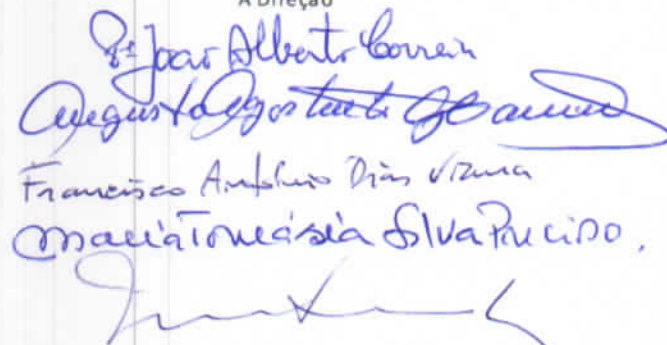 A Direção
Pe João Alberto Correia
Augusto Agostinho
Francisco António Dias Vieira
Maria Tomásia Silva Preciso.